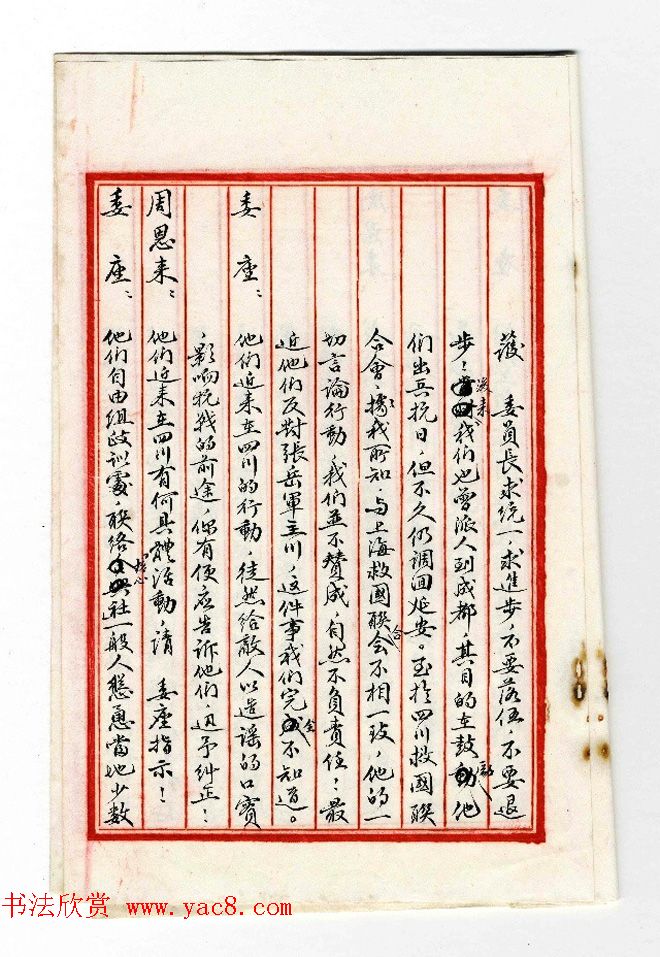 護　委員長求統一，求進步，不要落伍，不要退
步；後来我們也曾派人到成都，其目的在鼓勵他
们出兵抗日，但不久仍調回延安。至於四川救國聯
合會，據我所知，与上海救國聯合会不相一致，他的一
切言論行動，我們並不贊成，自然不負責任；最
近他們反對張岳軍主川，这件事我们完全不知道。
委　座：他们近来在四川的行動，徒然给敵人以造謡的口實
，影响抗战的前途，你有便應告訴他们，迅予纠正！
周恩来：他们近来在四川有何具體活動，请　委座指示！
委　座：他们自由组政训處，聯络核心社一般人慫恿當地少数
书法欣赏 www.yac8.com